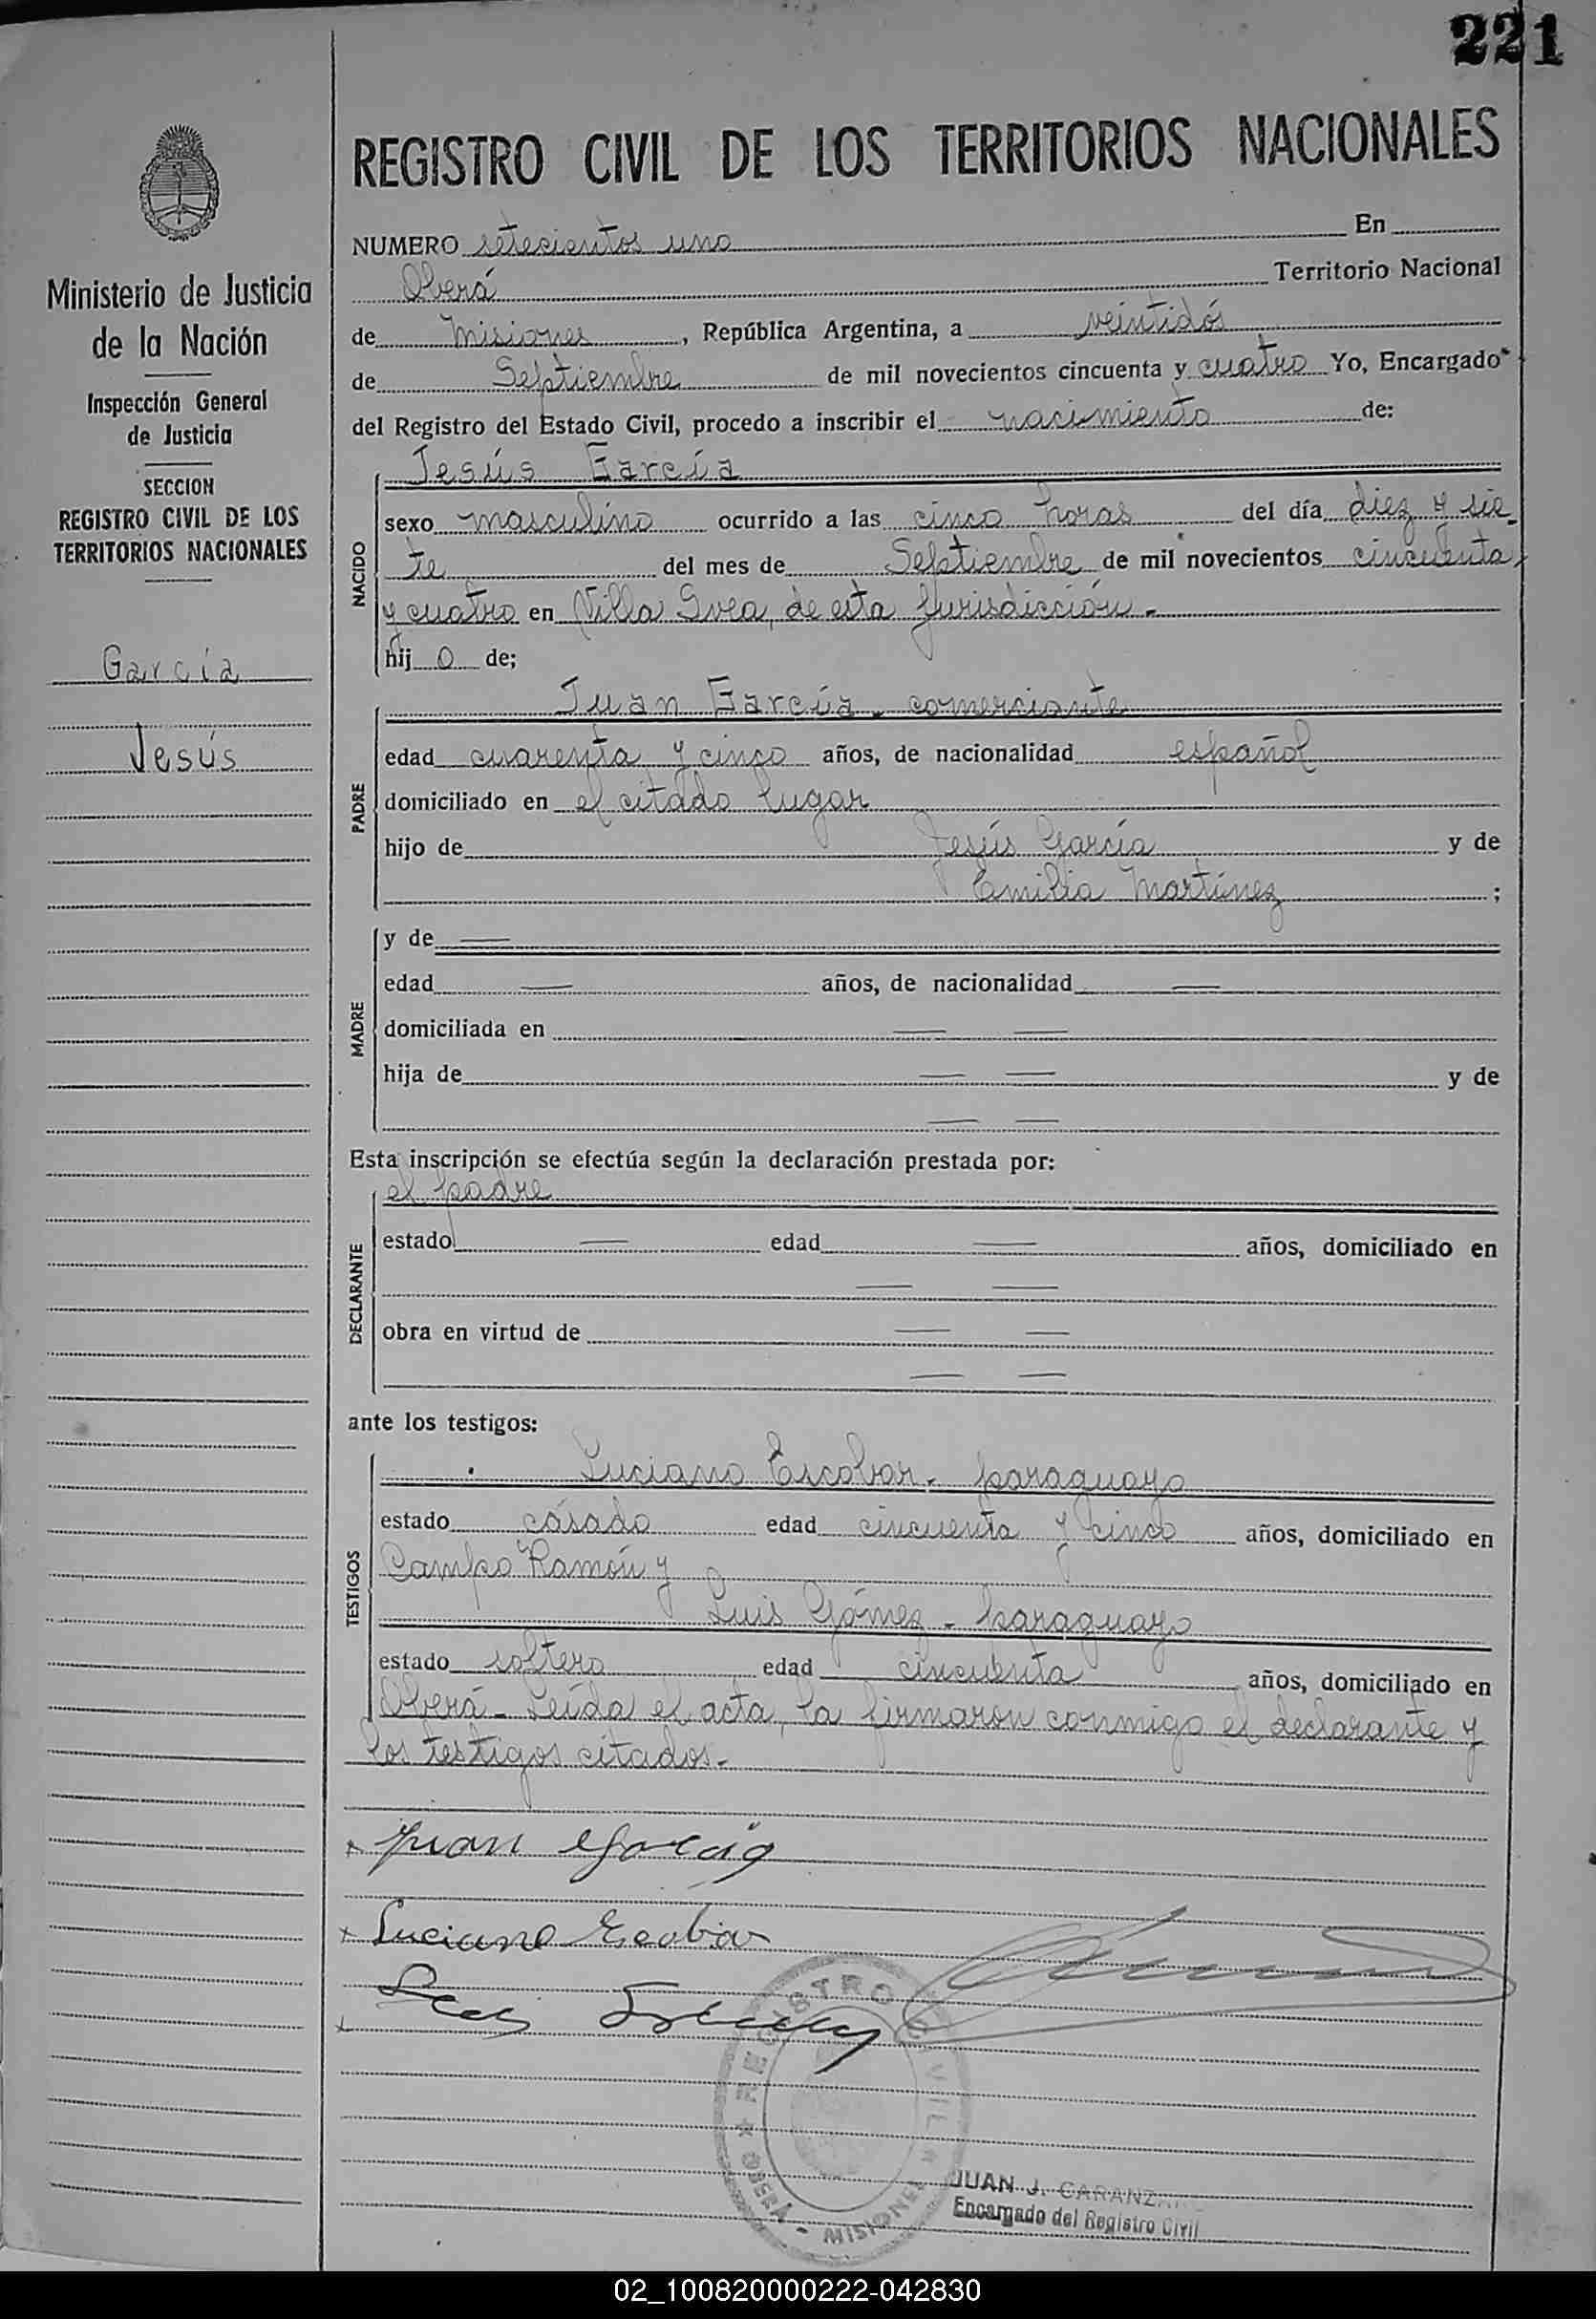 221
REGISTRO CIVIL DE LOS TERRITORIOS NACIONALES
Ministerio de Justicia
de la Nación
Inspección General
de Justicia
SECCION
REGISTRO CIVIL DE LOS
TERRITORIOS NACIONALES
García
Jesús
NUMERO setecientos uno En
Oberá Territorio Nacional
de Misiones, República Argentina, a veintidós
de Septiembre de mil novecientos cincuenta y cuatro Yo, Encargado
del Registro del Estado Civil, procedo a inscribir el nacimiento de:
NACIDO
Jesús García
sexo masculino ocurrido a las cinco horas del día diez y sie-
te del mes de Septiembre de mil novecientos cincuenta
y cuatro en Villa Svea, de esta jurisdicción.-
hij o de;
PADRE
Juan García - comerciante
edad cuarenta y cinco años, de nacionalidad español
domiciliado en el citado lugar
hijo de Jesús García y de
Emilia Martínez ;
MADRE
y de —
edad — años, de nacionalidad —
domiciliada en — —
hija de — — y de
— —
Esta inscripción se efectúa según la declaración prestada por:
DECLARANTE
el padre
estado — edad — años, domiciliado en
— —
obra en virtud de — —
— —
ante los testigos:
TESTIGOS
Luciano Escobar - paraguayo
estado casado edad cincuenta y cinco años, domiciliado en
Campo Ramón y
Luis Gómez - paraguayo
estado soltero edad cincuenta años, domiciliado en
Oberá - Leída el acta, la firmaron conmigo el declarante y
los testigos citados.-
x Juan Garcia
x Luciano Escobar
x Luis
REGISTRO CIVIL
OBERÁ - MISIONES
JUAN J.
Encargado del Registro Civil
02_100820000222-042830